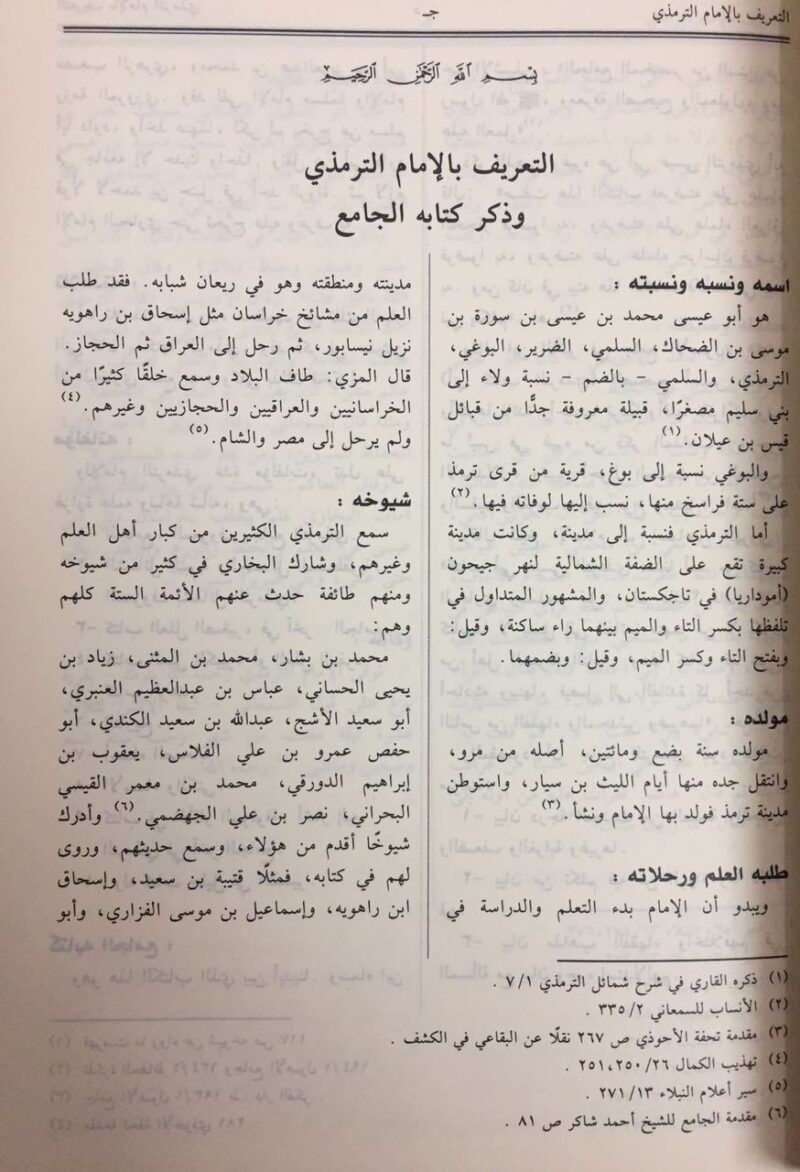 التعريف بالإمام الترمذي
جـ
بسم الله الرحمن الرحيم
التعريف بالإمام الترمذي
وذكر كتابه الجامع
اسمه ونسبه ونسبته :
هو أبو عيسى محمد بن عيسى بن سورة بن
موسى بن الضحاك، السلمي، الضرير، البوغي،
الترمذي، والسلمي - بالضم - نسبة ولاء إلى
بني سليم مصغرًا، قبيلة معروفة جدًّا من قبائل
قيس بن عيلان.(١)
والبوغي نسبة إلى بوغ، قرية من قرى ترمذ
على ستة فراسخ منها، نسب إليها لوفاته فيها.(٢)
أما الترمذي فنسبة إلى مدينة، وكانت مدينة
كبيرة تقع على الضفة الشمالية لنهر جيحون
(أموداريا) في تاجكستان، والمشهور المتداول في
تلفظها بكسر التاء والميم بينهما راء ساكنة، وقيل:
وبفتح التاء وكسر الميم، وقيل: وبضمهما.
مولده :
مولده سنة بضع ومائتين، أصله من مرو،
وانتقل جده منها أيام الليث بن سيار، واستوطن
مدينة ترمذ فولد بها الإمام ونشأ.(٣)
طلبه العلم ورحلاته :
ويبدو أن الإمام بدء التعلم والدراسة في
مدينته ومنطقته وهو في ريعان شبابه. فقد طلب
العلم من مشائخ خراسان مثل إسحاق بن راهويه
نزيل نيسابور، ثم رحل إلى العراق ثم الحجاز.
قال المزي: طاف البلاد وسمع خلقًا كثيرًا من
الخراسانيين والعراقيين والحجازيين وغيرهم.(٤)
ولم يرحل إلى مصر والشام.(٥)
شيوخه :
سمع الترمذي الكثيرين من كبار أهل العلم
وغيرهم، وشارك البخاري في كثير من شيوخه
ومنهم طائفة حدث عنهم الأئمة الستة كلهم
وهم:
محمد بن بشار، محمد بن المثنى، زياد بن
يحيى الحساني، عباس بن عبدالعظيم العنبري،
أبو سعيد الأشج، عبدالله بن سعيد الكندي، أبو
حفص عمرو بن علي الفلاس، يعقوب بن
إبراهيم الدورقي، محمد بن معمر القيسي
البحراني، نصر بن علي الجهضمي.(٦) وأدرك
شيوخًا أقدم من هؤلاء، وسمع حديثهم، وروى
لهم في كتابه، فمثلًا قتيبة بن سعيد، وإسحاق
ابن راهويه، وإسماعيل بن موسى الفزاري، وأبو
(١) ذكره القاري في شرح شمائل الترمذي ٧/١ .
(٢) الأنساب للسمعاني ٢/ ٣٣٥ .
(٣) مقدمة تحفة الأحوذي ص ٢٦٧ نقلًا عن البقاعي في الكشف .
(٤) تهذيب الكمال ٢٦/ ٢٥١،٢٥٠ .
(٥) سير أعلام النبلاء ١٣/ ٢٧١ .
(٦) مقدمة الجامع للشيخ أحمد شاكر ص ٨١ .